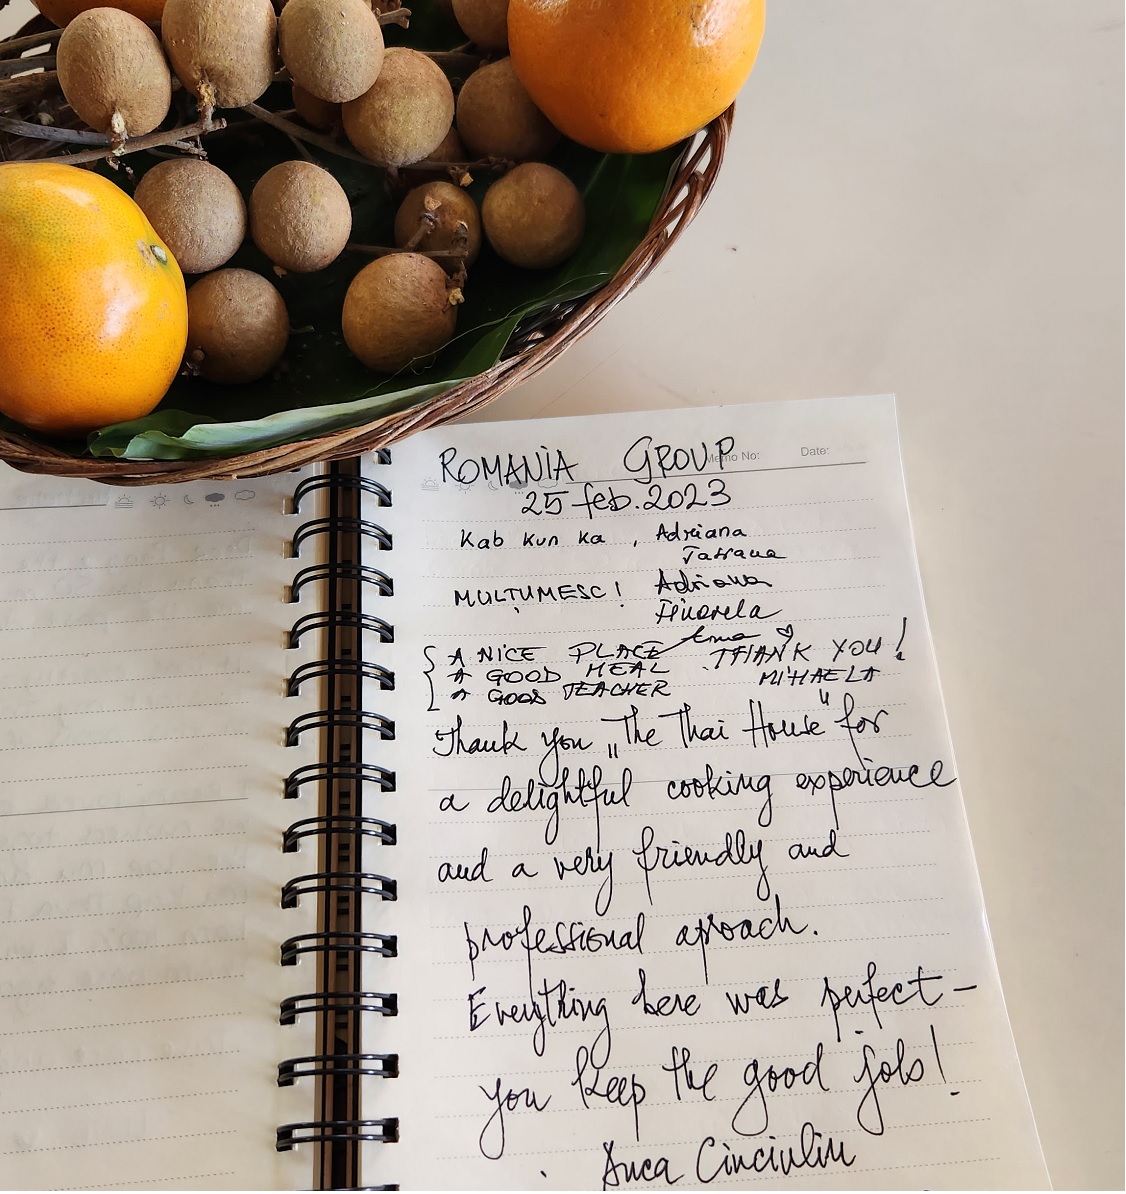 Memo No: Date:
ROMANIA GROUP
25 feb. 2023
Kab kun ka , Adriana
Tatiana
MULȚUMESC! Adriana
A NICE PLACE THANK YOU!
A GOOD MEAL MIHAELA
A GOOD TEACHER
Thank you „The Thai House" for
a delightful cooking experience
and a very friendly and
professional aproach.
Everything here was perfect –
you keep the good job!
Anca